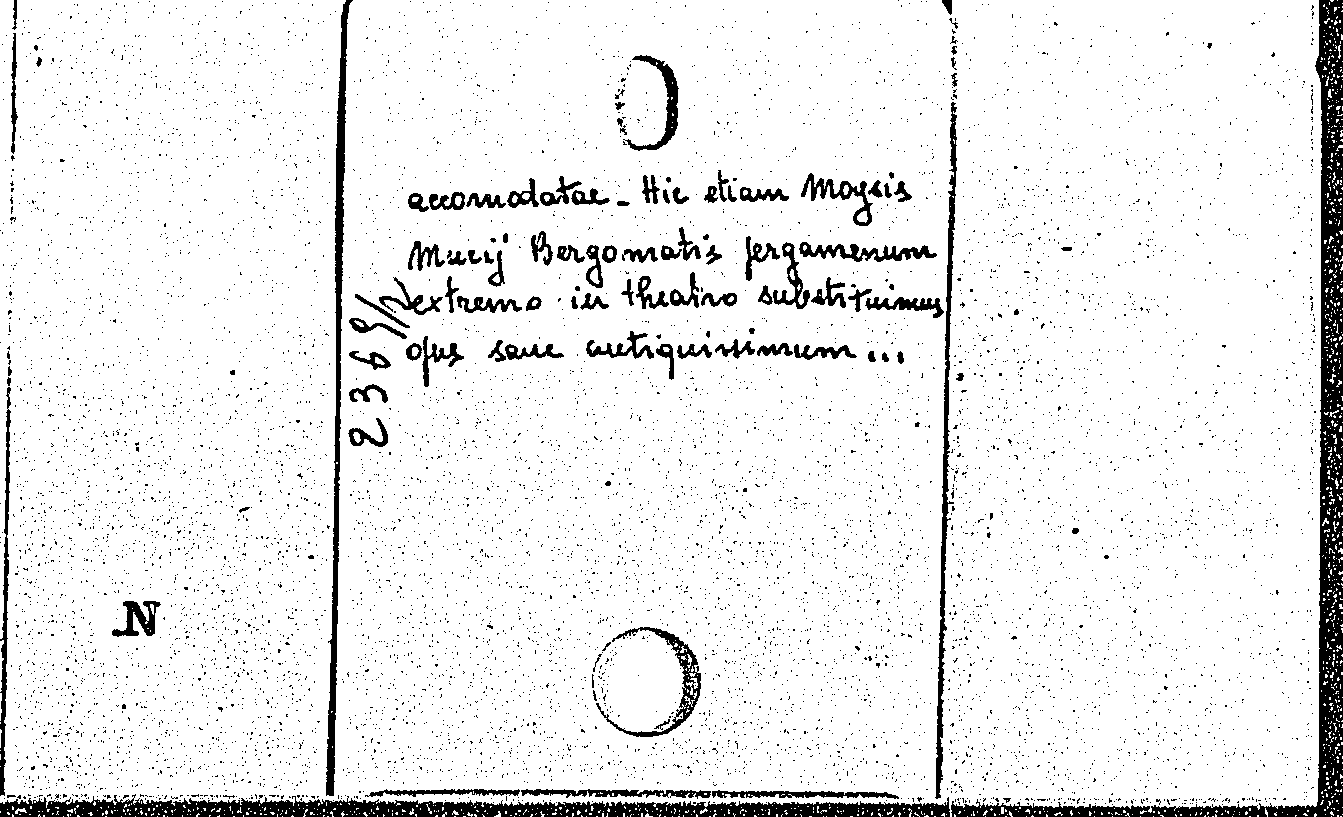 accomodatae - Hic etiam Moysis
Mucij Bergomatis pergamenum
extremo in theatro substituimus
opus sane antiquissimum...
2369/2
N